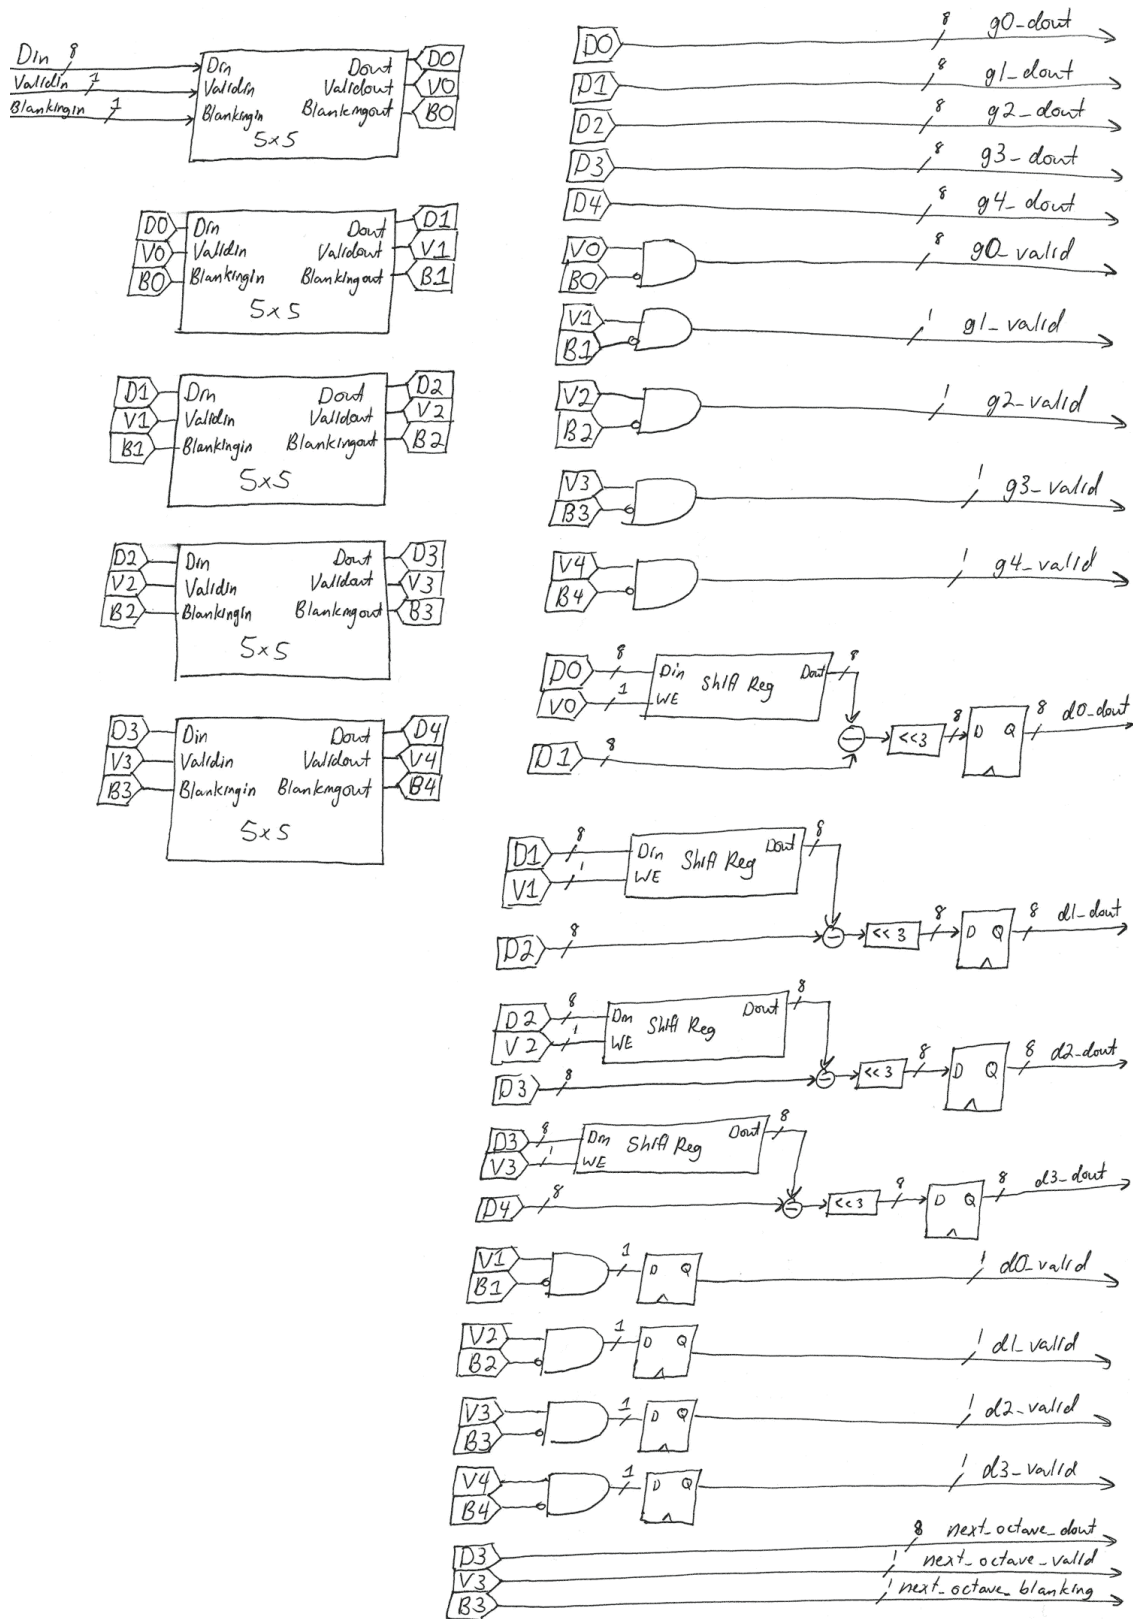 Din 8
Validin 1
Blankingin 1
Din Dout D0
Validin Validout V0
Blankingin Blankingout B0
5x5
D0 Din Dout D1
V0 Validin Validout V1
B0 Blankingin Blankingout B1
5x5
D1 Din Dout D2
V1 Validin Validout V2
B1 Blankingin Blankingout B2
5x5
D2 Din Dout D3
V2 Validin Validout V3
B2 Blankingin Blankingout B3
5x5
D3 Din Dout D4
V3 Validin Validout V4
B3 Blankingin Blankingout B4
5x5
D0 8 g0_dout
D1 8 g1_dout
D2 8 g2_dout
D3 8 g3_dout
D4 8 g4_dout
V0 8 g0_valid
B0
V1 1 g1_valid
B1
V2 1 g2_valid
B2
V3 1 g3_valid
B3
V4 1 g4_valid
B4
D0 8 Din Shift Reg Dout 8
V0 1 WE
<<3 8 D Q 8 d0_dout
D1 8
D1 8 Din Shift Reg Dout 8
V1 1 WE
D2 8 <<3 8 D Q 8 d1_dout
D2 8 Din Shift Reg Dout 8
V2 1 WE
D3 8 <<3 8 D Q 8 d2_dout
D3 8 Din Shift Reg Dout 8
V3 1 WE
D4 8 <<3 8 D Q 8 d3_dout
V1 1 D Q 1 d0_valid
B1
V2 1 D Q 1 d1_valid
B2
V3 1 D Q 1 d2_valid
B3
V4 1 D Q 1 d3_valid
B4
D3 8 next_octave_dout
V3 1 next_octave_valid
B3 1 next_octave_blanking